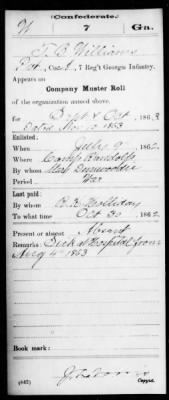 Confederate.
W 7 Ga.
J. C. Williams
Pvt, Co. I, 7 Reg't Georgia Infantry.
Appears on
Company Muster Roll
of the organization named above,
for Sept & Oct, 1863
Dated Nov. 10 1863
Enlisted:
When July 9, 1862
Where Camp Randolph
By whom Maj Dunwoodie
Period War
Last paid:
By whom R. K. Holliday
To what time Oct 30, 1862
Present or absent Absent
Remarks: Sick at Hospital from
Aug 4th 1863
Book mark:
(642) Copyist.